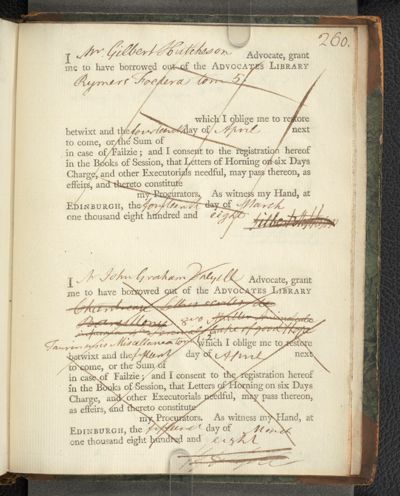 260.
I Mr Gilbert Hutcheson Advocate, grant
me to have borrowed out of the ADVOCATES LIBRARY
Rymers Foedera tom 5
which I oblige me to restore
betwixt and the fourteenth day of April next
to come, or the Sum of
in case of Failzie; and I consent to the registration hereof
in the Books of Session, that Letters of Horning on six Days
Charge, and other Executorials needful, may pass thereon, as
effeirs, and thereto constitute
my Procurators. As witness my Hand, at
EDINBURGH, the fourteenth day of March
one thousand eight hundred and eight
I John Graham Dalyell Advocate, grant
me to have borrowed out of the ADVOCATES LIBRARY
8vo
of good hope
which I oblige me to restore
betwixt and the day of April next
to come, or the Sum of
in case of Failzie; and I consent to the registration hereof
in the Books of Session, that Letters of Horning on six Days
Charge, and other Executorials needful, may pass thereon, as
effeirs, and thereto constitute
my Procurators. As witness my Hand, at
EDINBURGH, the fifteenth day of March
one thousand eight hundred and eight